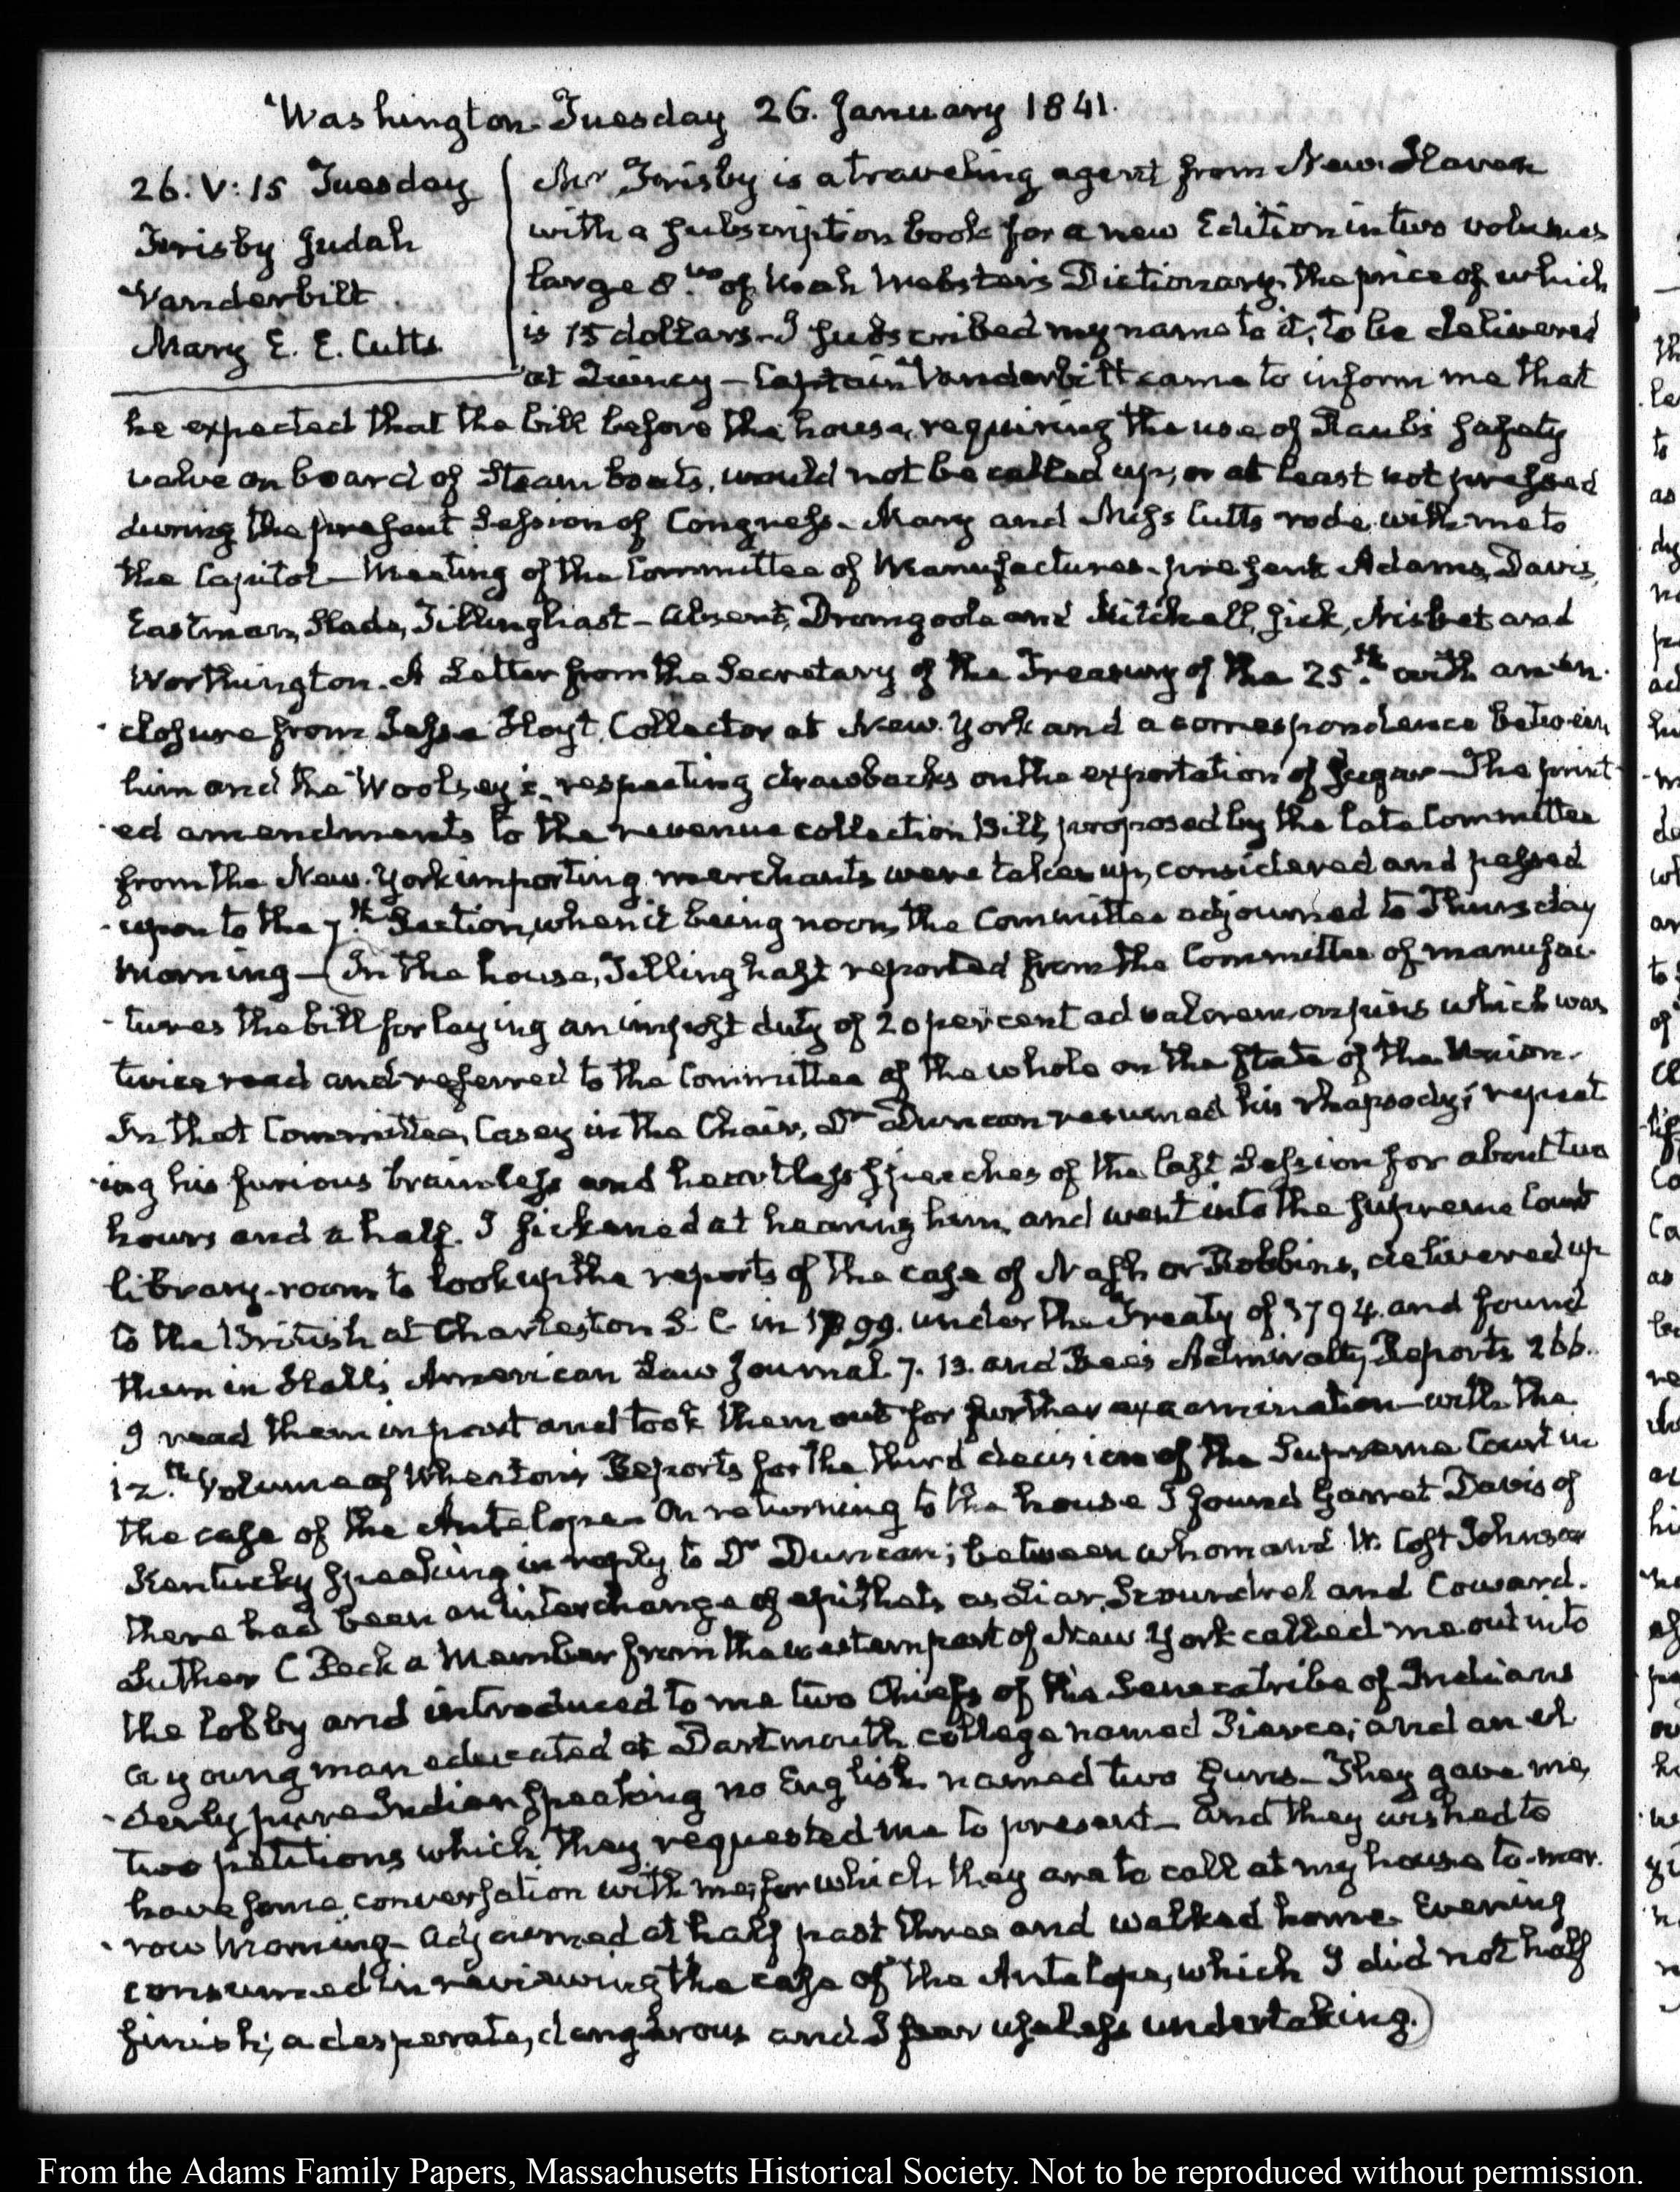 Washington Tuesday 26. January 1841.
26. V:15 Tuesday
Frisby Judah
Vanderbilt
Mary E. E. Cutts.
Mr Frisby is a traveling agent from New-Haven
with a subscription book for a new Edition in two volumes
large 8.vo of Noah Webster's Dictionary, the price of which
is 15 dollars—I subscribed my name to it, to be delivered
at Quincy—Captain Vanderbilt came to inform me that
he expected that the bill before the house, requiring the use of Raub's safety
valve on board of Steam boats, would not be called up, or at least not pressed
during the present Session of Congress—Mary and Miss Cutts rode with me to
the Capitol—Meeting of the Committee of Manufactures—present Adams, Davis,
Eastman, Slade, Tillinghast—Absent, Dromgoole and Mitchell, sick, Nisbet and
Worthington. A Letter from the Secretary of the Treasury of the 25.th with an en-
closure from Jesse Hoyt, Collector at New-York and a correspondence between
him and the Woolsey's, respecting drawbacks on the exportation of Sugar—The print-
ed amendments to the revenue collection Bill, proposed by the late Committee
from the New-York importing merchants were taken up, considered and passed
upon to the 7.th Section, when it being noon, the Committee adjourned to Thursday
morning—(In the house, Tillinghast reported from the Committee of manufac-
tures the bill for laying an impost duty of 20 per cent ad valorem on pins which was
twice read and referred to the Committee of the whole on the state of the Union.
In that Committee, Casey in the Chair, Dr Duncan resumed his rhapsody; repeat-
ing his furious brainless and heartless speeches of the last Session for about two
hours and a half. I sickened at hearing him, and went into the Supreme Court
library-room to look up the reports of the case of Nash or Robbins, delivered up
to the British at Charleston S. C. in 1799. under the Treaty of 1794. and found
them in Hall's American Law Journal 7. 13. and Bee's Admiralty Reports 266.
I read them in part and took them out for further examination with the
12.th Volume of Wheaton's Reports for the third decision of the Supreme Court in
the case of the Antelope—On returning to the house I found Garret Davis of
Kentucky speaking in reply to Dr Duncan; between whom and W. Cost Johnson
there had been an interchange of epithets as Liar, Scoundrel and Coward.
Luther C Peck a Member from the western part of New York called me out into
the lobby and introduced to me two Chiefs of the Seneca tribe of Indians
a young man educated at Dartmouth college named Pierce; and an el-
derly pure Indian speaking no English named two Guns—They gave me
two petitions which they requested me to present—and they wished to
have some conversation with me, for which they are to call at my house to-mor-
row Morning—Adjourned at half past three and walked home. Evening
consumed in reviewing the case of the Antelope, which I did not half
finish; a desperate, dangerous and I fear useless undertaking.)
From the Adams Family Papers, Massachusetts Historical Society. Not to be reproduced without permission.